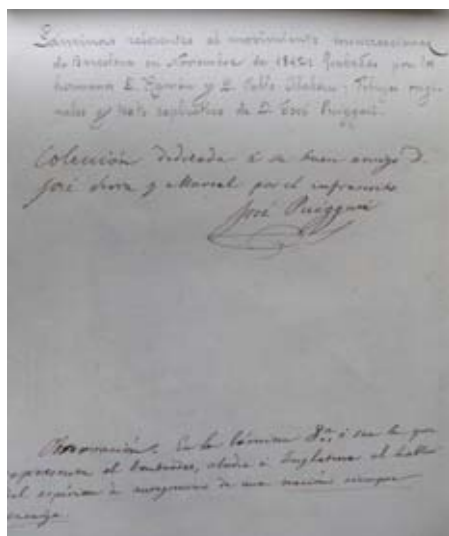 Láminas referentes al movimiento insurreccional
de Barcelona en Noviembre de 1842; grabadas por los
hermanos D. Ramón y D. Pablo Alabern; Dibujos origi-
nales y texto explicativo de D. José Puiggarí.
Colección dedicada á su buen amigo D.
José y Marsal por el infrascrito
José Puiggarí
Observación. En la lámina 8ª, ó sea la que
representa el bombardeo, alude á Inglaterra el
del de una nación siempre